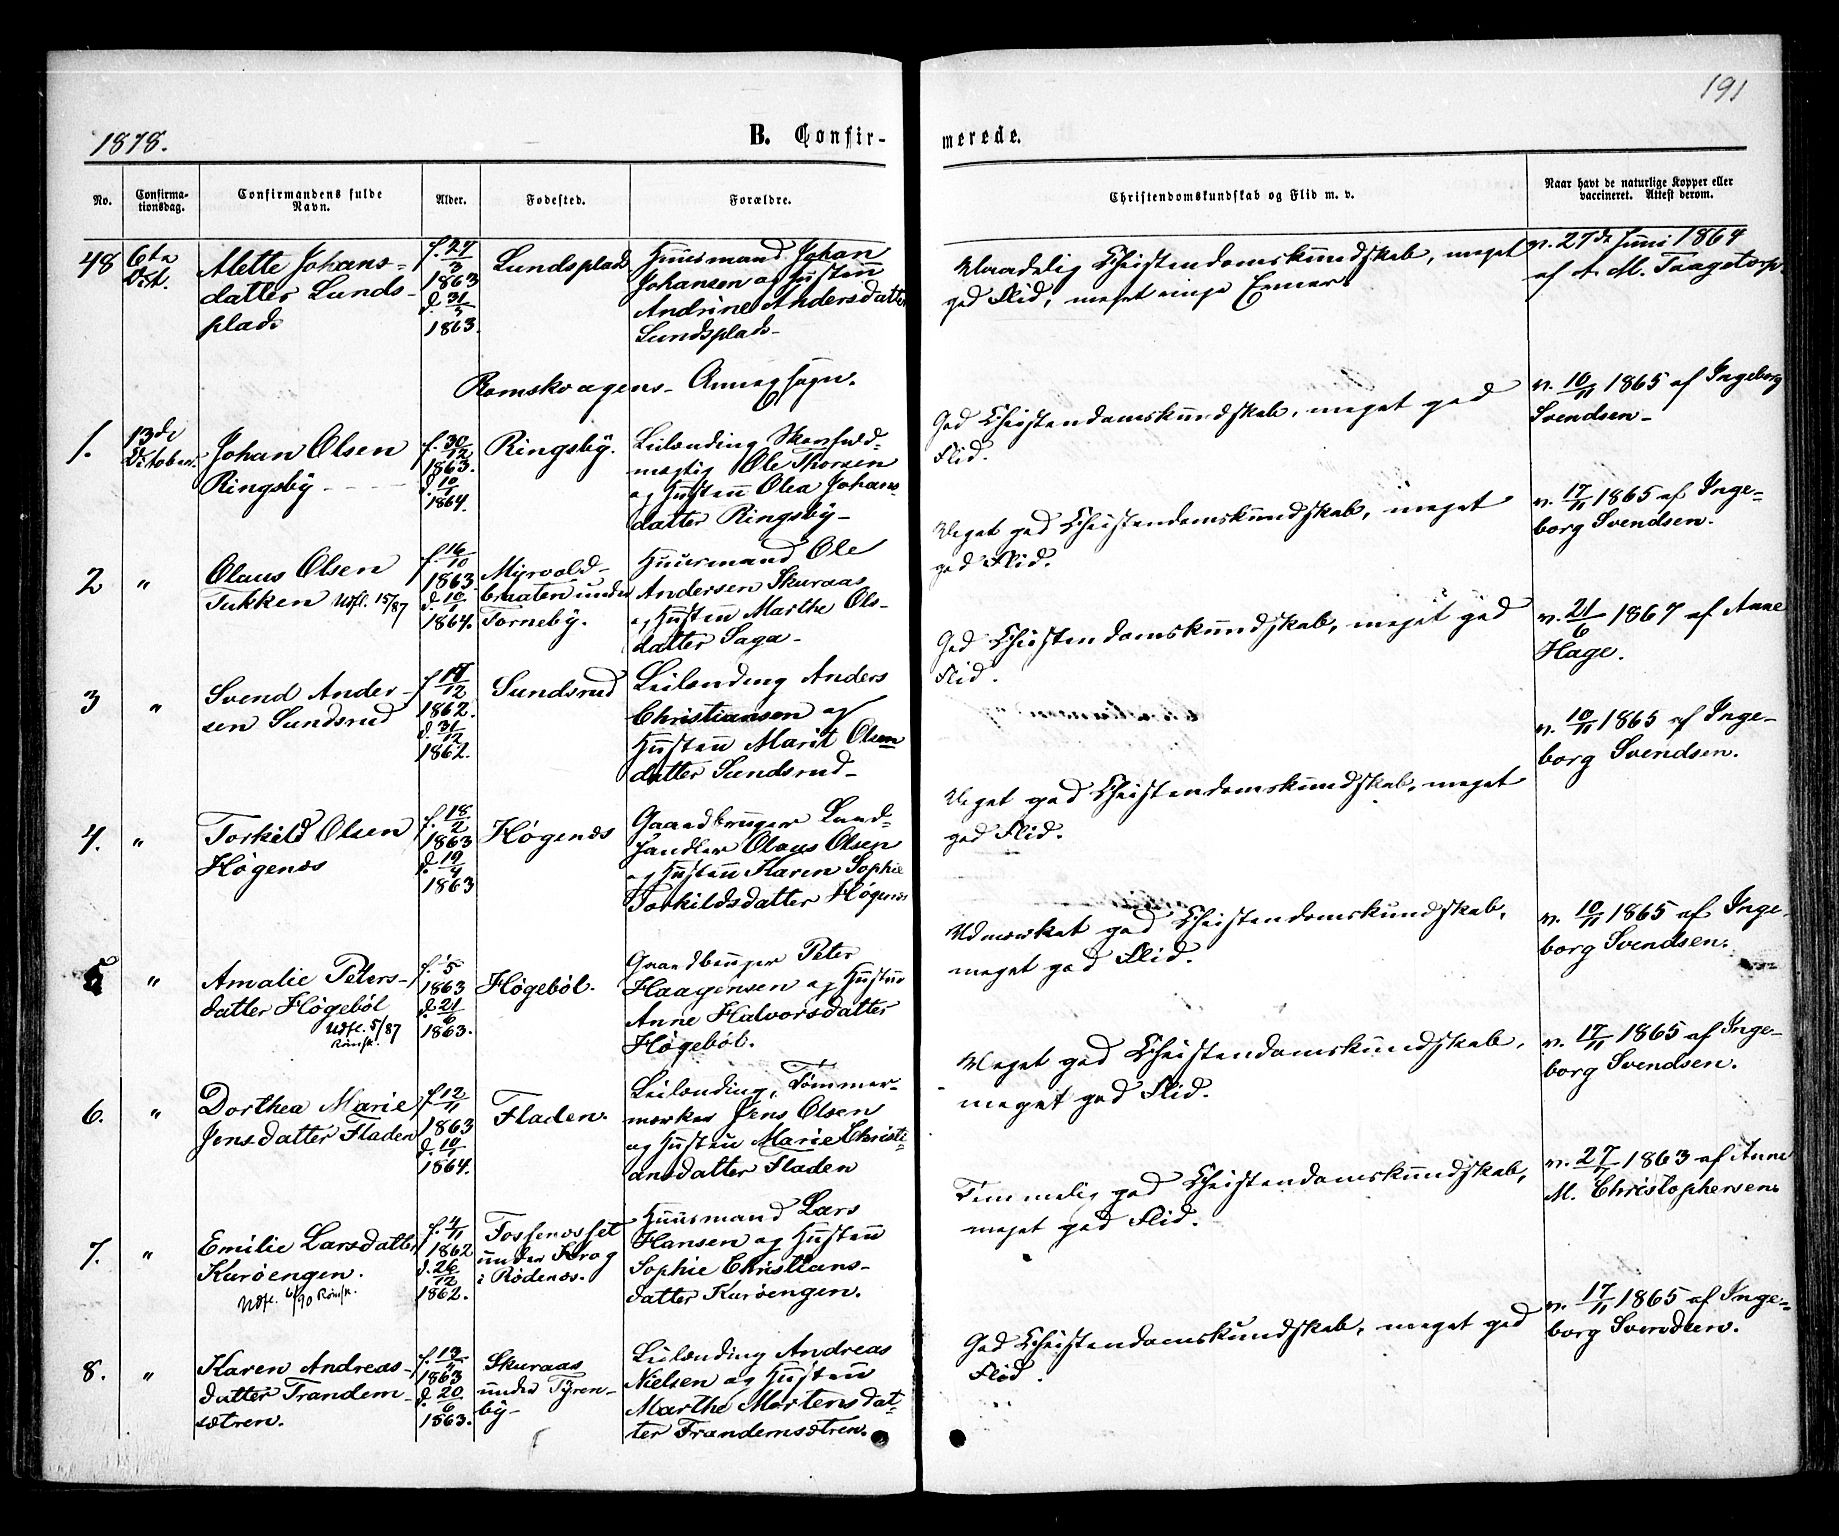 191
1878.
B. Confir-
merede.
No.
Confirma-
tionsdag.
Confirmandens fulde
Navn.
Alder.
Fødested.
Forældre.
Christendomskundskab og Flid m. v.
Naar havt de naturlige Kopper eller
vaccineret. Attest derom.
48
6te
Oct.
Alette Johans-
datter Lunds-
plads
f. 27/3
1863
d. 31/5
1863.
Lundsplads
Huusmand Johan
Johansen og Hustru
Andrine Andersdatter
Lundsplads-
Maadelig Christendomskundskab, meget
god Flid, meget ringe Evner.
v. 27de Juni 1864
af A. M. Taagetorp.
Romskogens Annexsogn.
1.
13de
October.
Johan Olsen
Ringsby
f. 30/12
1863.
d. 10/1
1864.
Ringsby.
Leilænding Skovfuld-
mægtig Ole Thorsen
og Hustru Olea Johans-
datter Ringsby-
God Christendomskundskab, meget god
Flid.
v. 10/11 1865 af Ingeborg
Svendsen-
2
"
Olaus Olsen
Tukken Udfl. 15/87
f. 16/10
1863
d. 10/1
1864.
Myrvold-
braaten under
Torneby.
Huusmand Ole
Andersen Skuraas
og Hustru Marthe Ols-
datter Saga-
Meget god Christendomskundskab, meget
god Flid.
v. 17/11 1865 af Inge-
borg Svendsen.
3
"
Svend Ander-
sen Sundsrud
f. 17/12
1862.
d. 31/12
1862.
Sundsrud
Leilænding Anders
Christiansen og
Hustru Marit Olsen
datter Sundsrud-
God Christendomskundskab, meget god
Flid.
v. 21/6 1867 af Anne
Hage.
4.
"
Torkild Olsen
Høgenæs
f. 18/2
1863
d. 19/4
1863
Høgenæs
Gaardbruger Land-
handler Olaus Olsen
og Hustru Karen Sophie
Torkildsdatter Høgenæs
Meget god Christendomskundskab, meget
god Flid.
v. 10/11 1865 af Inge-
borg Svendsen.
5
"
Amalie Peters-
datter Høgebøl
Udfl. 5/87
Rømsk.
f. 5
1863
d. 21/6
1863.
Høgebøl.
Gaardbruger Peter
Haagensen og Hustru
Anne Halvorsdatter
Høgebøl.
Udmærket god Christendomskundskab,
meget god Flid.
v. 10/11 1865 af Inge-
borg Svendsen.
6.
"
Dorthea Marie
Jensdatter Fladen
f. 12/11
1863
d. 10/1
1864.
Fladen.
Leilænding, Tømmer-
mærker Jens Olsen
og Hustru Marie Christi-
ansdatter Fladen
Meget god Christendomskundskab,
meget god Flid.
v. 17/11 1865 af Inge-
borg Svendsen.
7.
"
Emilie Larsdatter
Kurøengen.
Udfl. 6/90 Rømsk.
f. 4/11
1862
d. 26/12
1862.
Fossenæsset
under Krog
i Rødenæs.
Huusmand Lars
Hansen og Hustru
Sophie Christians-
datter Kurøengen.
Temmelig god Christendomskundskab,
meget god Flid.
v. 27/7 1863 af Anne
M. Christophersen.
8.
"
Karen Andreas-
datter Trandem-
sætren.
f. 13/5
1863
d. 20/6
1863.
Skuraas
under Tyren-
by-
Leilænding Andreas
Nielsen og Hustru
Marthe Mortensdat-
ter Trandemsætren.
God Christendomskundskab, meget god
Flid.
v. 17/11 1865 af Inge-
borg Svendsen.